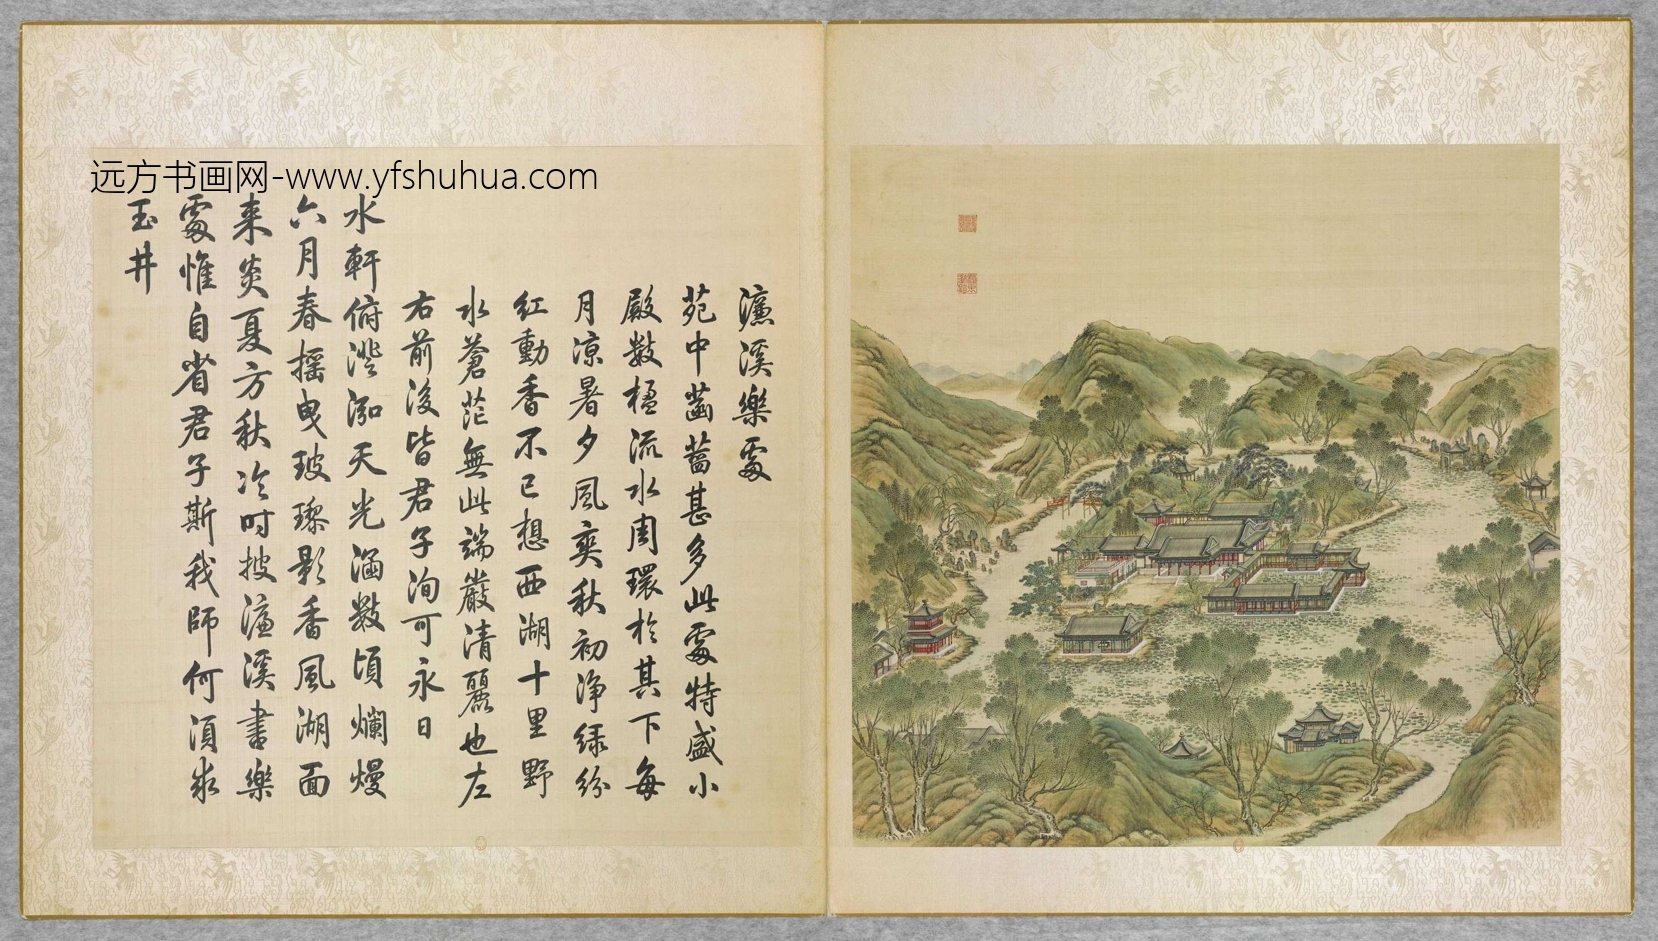 远方书画网-www.yfshuhua.com
濂溪樂處
苑中菡萏甚多此處特盛小
殿數楹流水周環於其下每
月凉暑夕風爽秋初淨綠紛
紅動香不已想西湖十里野
水蒼茫無此端嚴清麗也左
右前後皆君子洵可永日
水軒俯澄泓天光涵數頃爛熳
六月春摇曳玻瓈影香風湖面
来炎夏方秋冷时披濂溪書樂
處惟自省君子斯我師何須求
玉井